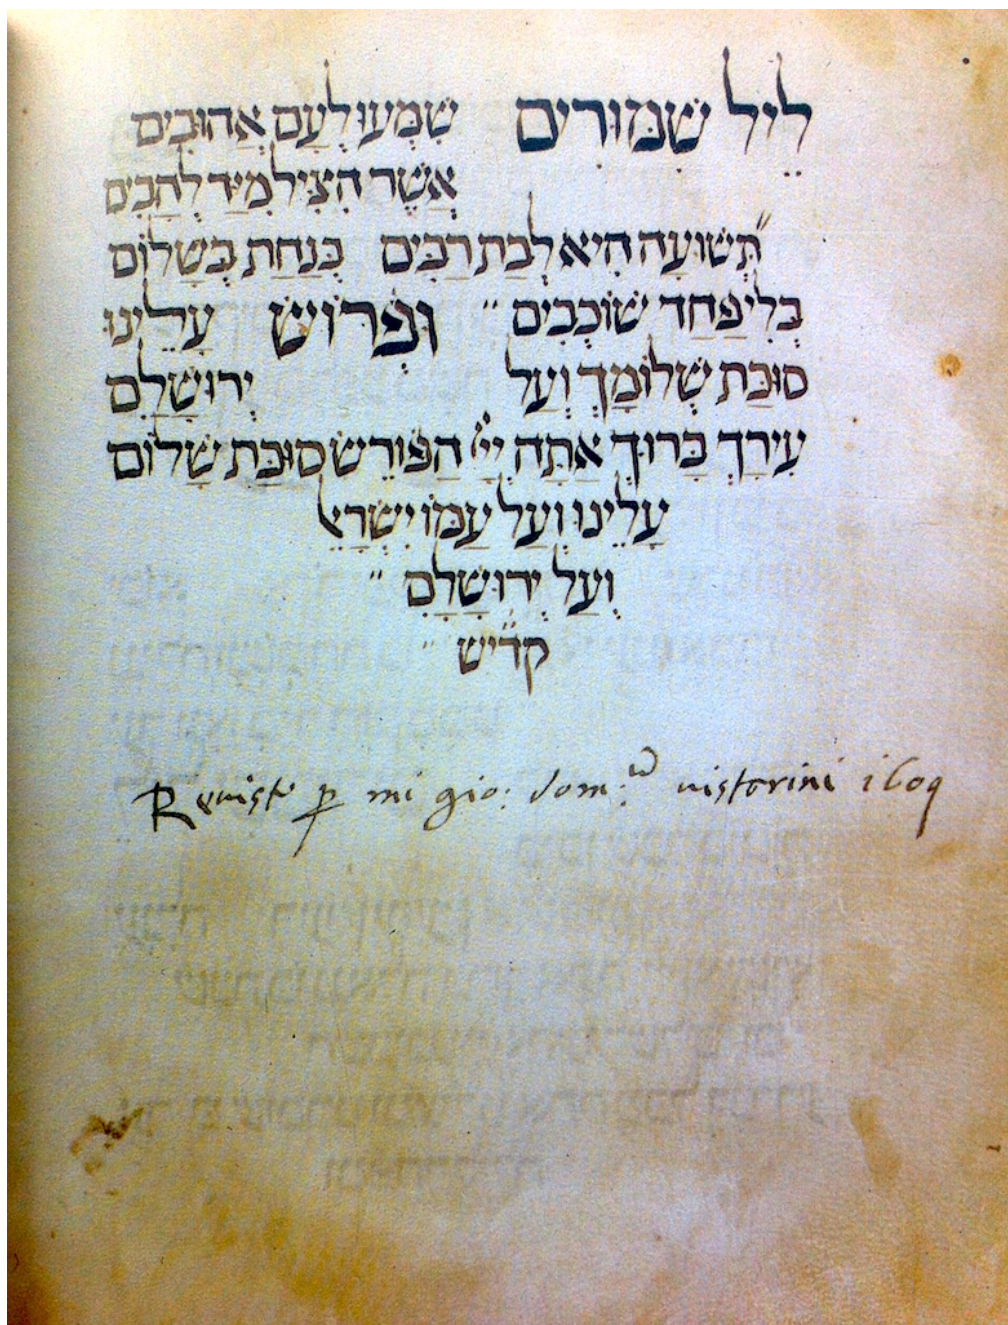 ליל שמורים שִׁמְעוּ לְעַם אֲהוּבִים
אֲשֶׁר הִצִּיל מִיַּד לְהָבִים
תְּשׁוּעָה הִיא לְבַת רַבִּים בְּנַחַת בְּשָׁלוֹם
בְּלִי פַחַד שׁוֹכְבִים וּפְרוֹשׂ עָלֵינוּ
סוּכַּת שְׁלוֹמָךְ וְעַל יְרוּשָׁלִַם
עִירָךְ בָּרוּךְ אַתָּה יְיָ הַפּוֹרֵשׂ סוּכַּת שָׁלוֹם
עָלֵינוּ וְעַל עַמּוֹ יִשְׂרָאֵל
וְעַל יְרוּשָׁלִָם
קדיש
Revisto p mi gio: dom:co vistorini 1609